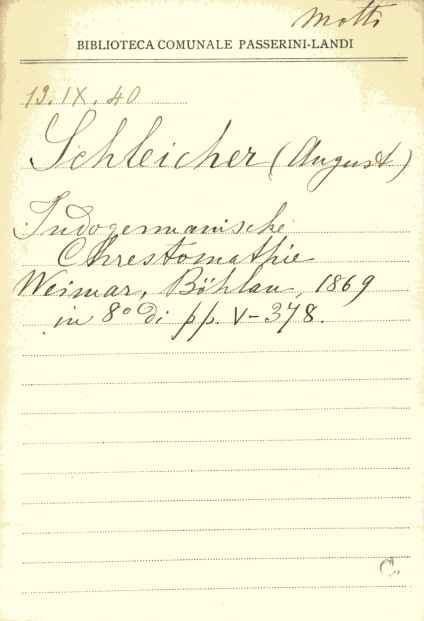 Motti
BIBLIOTECA COMUNALE PASSERINI-LANDI
19.IX.40
Schleicher (August)
Indogermanische
Chrestomathie
Weimar, Böhlau, 1869
in 8° di pp. V-378.
C.